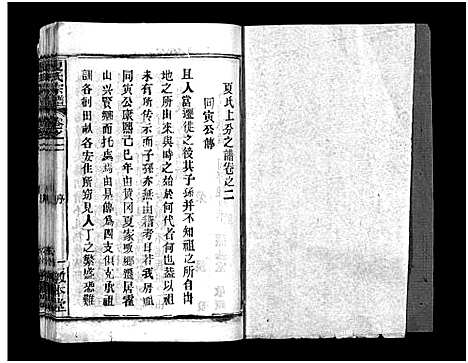 夏氏上房之譜卷之二
同寅公傳
且人當遷徙之後其子孫并不知所自出
地之所由來與時之始於何代者何也蓋以祖
未有所傳示而子孫亦無由稽考耳若我房
同寅公康熙己巳年由黃冈夏家墩鄉遷居
山兴賢鄉而托處焉由是傳爲四支俱克承祖
訓各創田畝各安住所窈見人丁之繁盛恐難
夏氏宗譜
卷之二
序